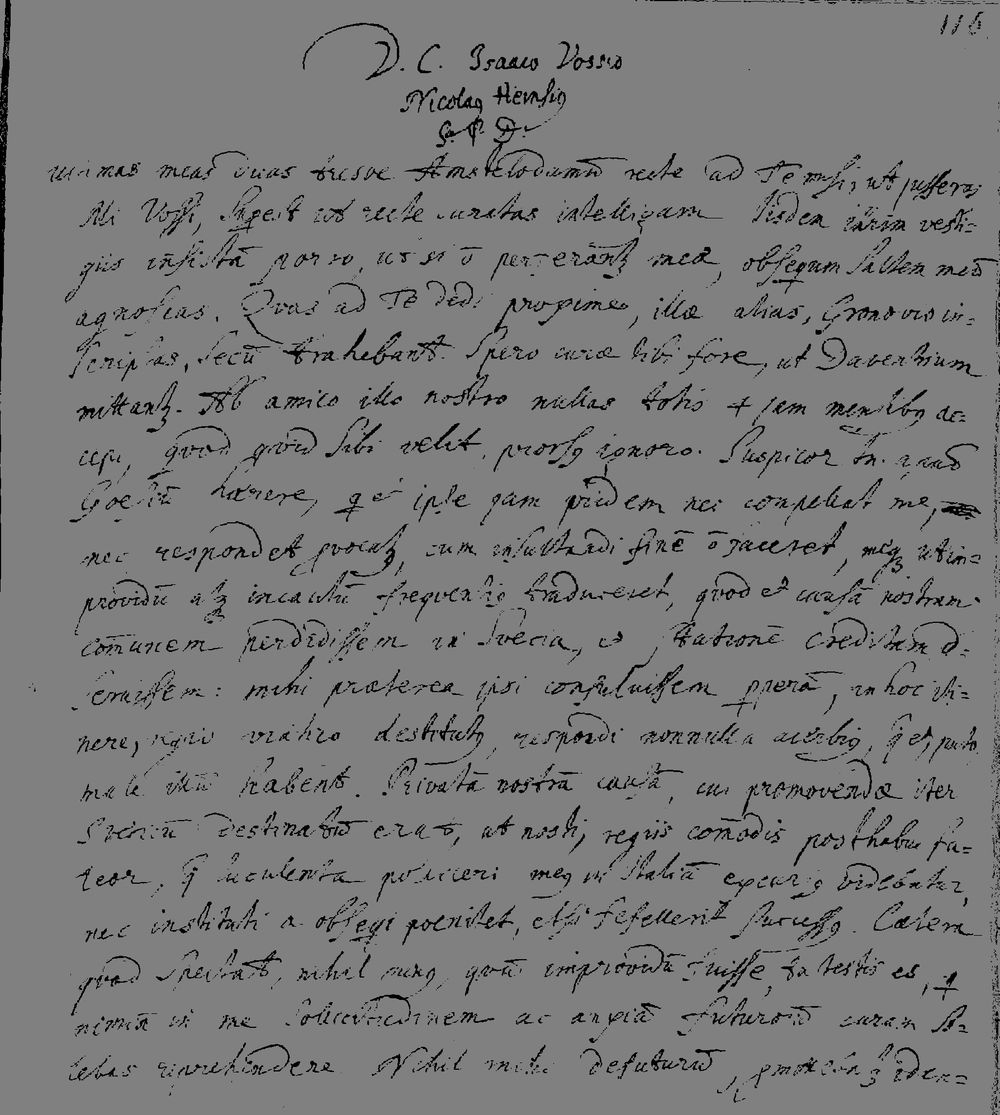 116
V. C. Isaaco Vossio
Nicolaus Heinsius
S. P. D.
meas duas tresve Amstelodamū recte ad Te misi, ut jusseras
Mi Vossi, recte curatas intelligam Iisdem vesti=
giis insistā porro, ut si ō meæ, obsequium saltem meū
agnoscas. Quas ad Te dedi proxime, illæ alias, Gronovio in=
scriptas, secū trahebant. Spero curæ tibi fore, ut Daventrium
mittantur. Ab amico illo nostro nullas totis jam mensibus ac=
cepi, quod quid sibi velit, prorsus ignoro. Suspicor tn. apud
Goesiū hærere, ipse jam pridem nec compellat me,
nec respondet provocatus, cum insultandi finē ō faceret, meque ut im=
providū atque incautū frequentius traduceret, quod et causā nostram
com̄unem perdidissem in Svecia, et stationē creditam d=
seruissem: mihi præterea ipsi consuluissem pperā, in hoc iti=
nere, regio viatico destitutus, respondi nonnulla acerbius, q̄ et, puto
male illū habent. Privatā nostrā causā, cui promovendæ iter
Svecicū destinatū erat, ut nosti, regiis com̄odis posthabui fa=
teor, q̄ luculenta polliceri meus in Italiā excursus videbatur,
nec instituti a obseqi poenitet, etsi fefellerit successus. Cætera
quod spectat, nihil minus, quā improvidū fuisse, tu testis es,
nimiā in me sollicitudinem ac anxiā futurorū curam so=
lebas reprehendere. Nihil mihi defuturū, iden=